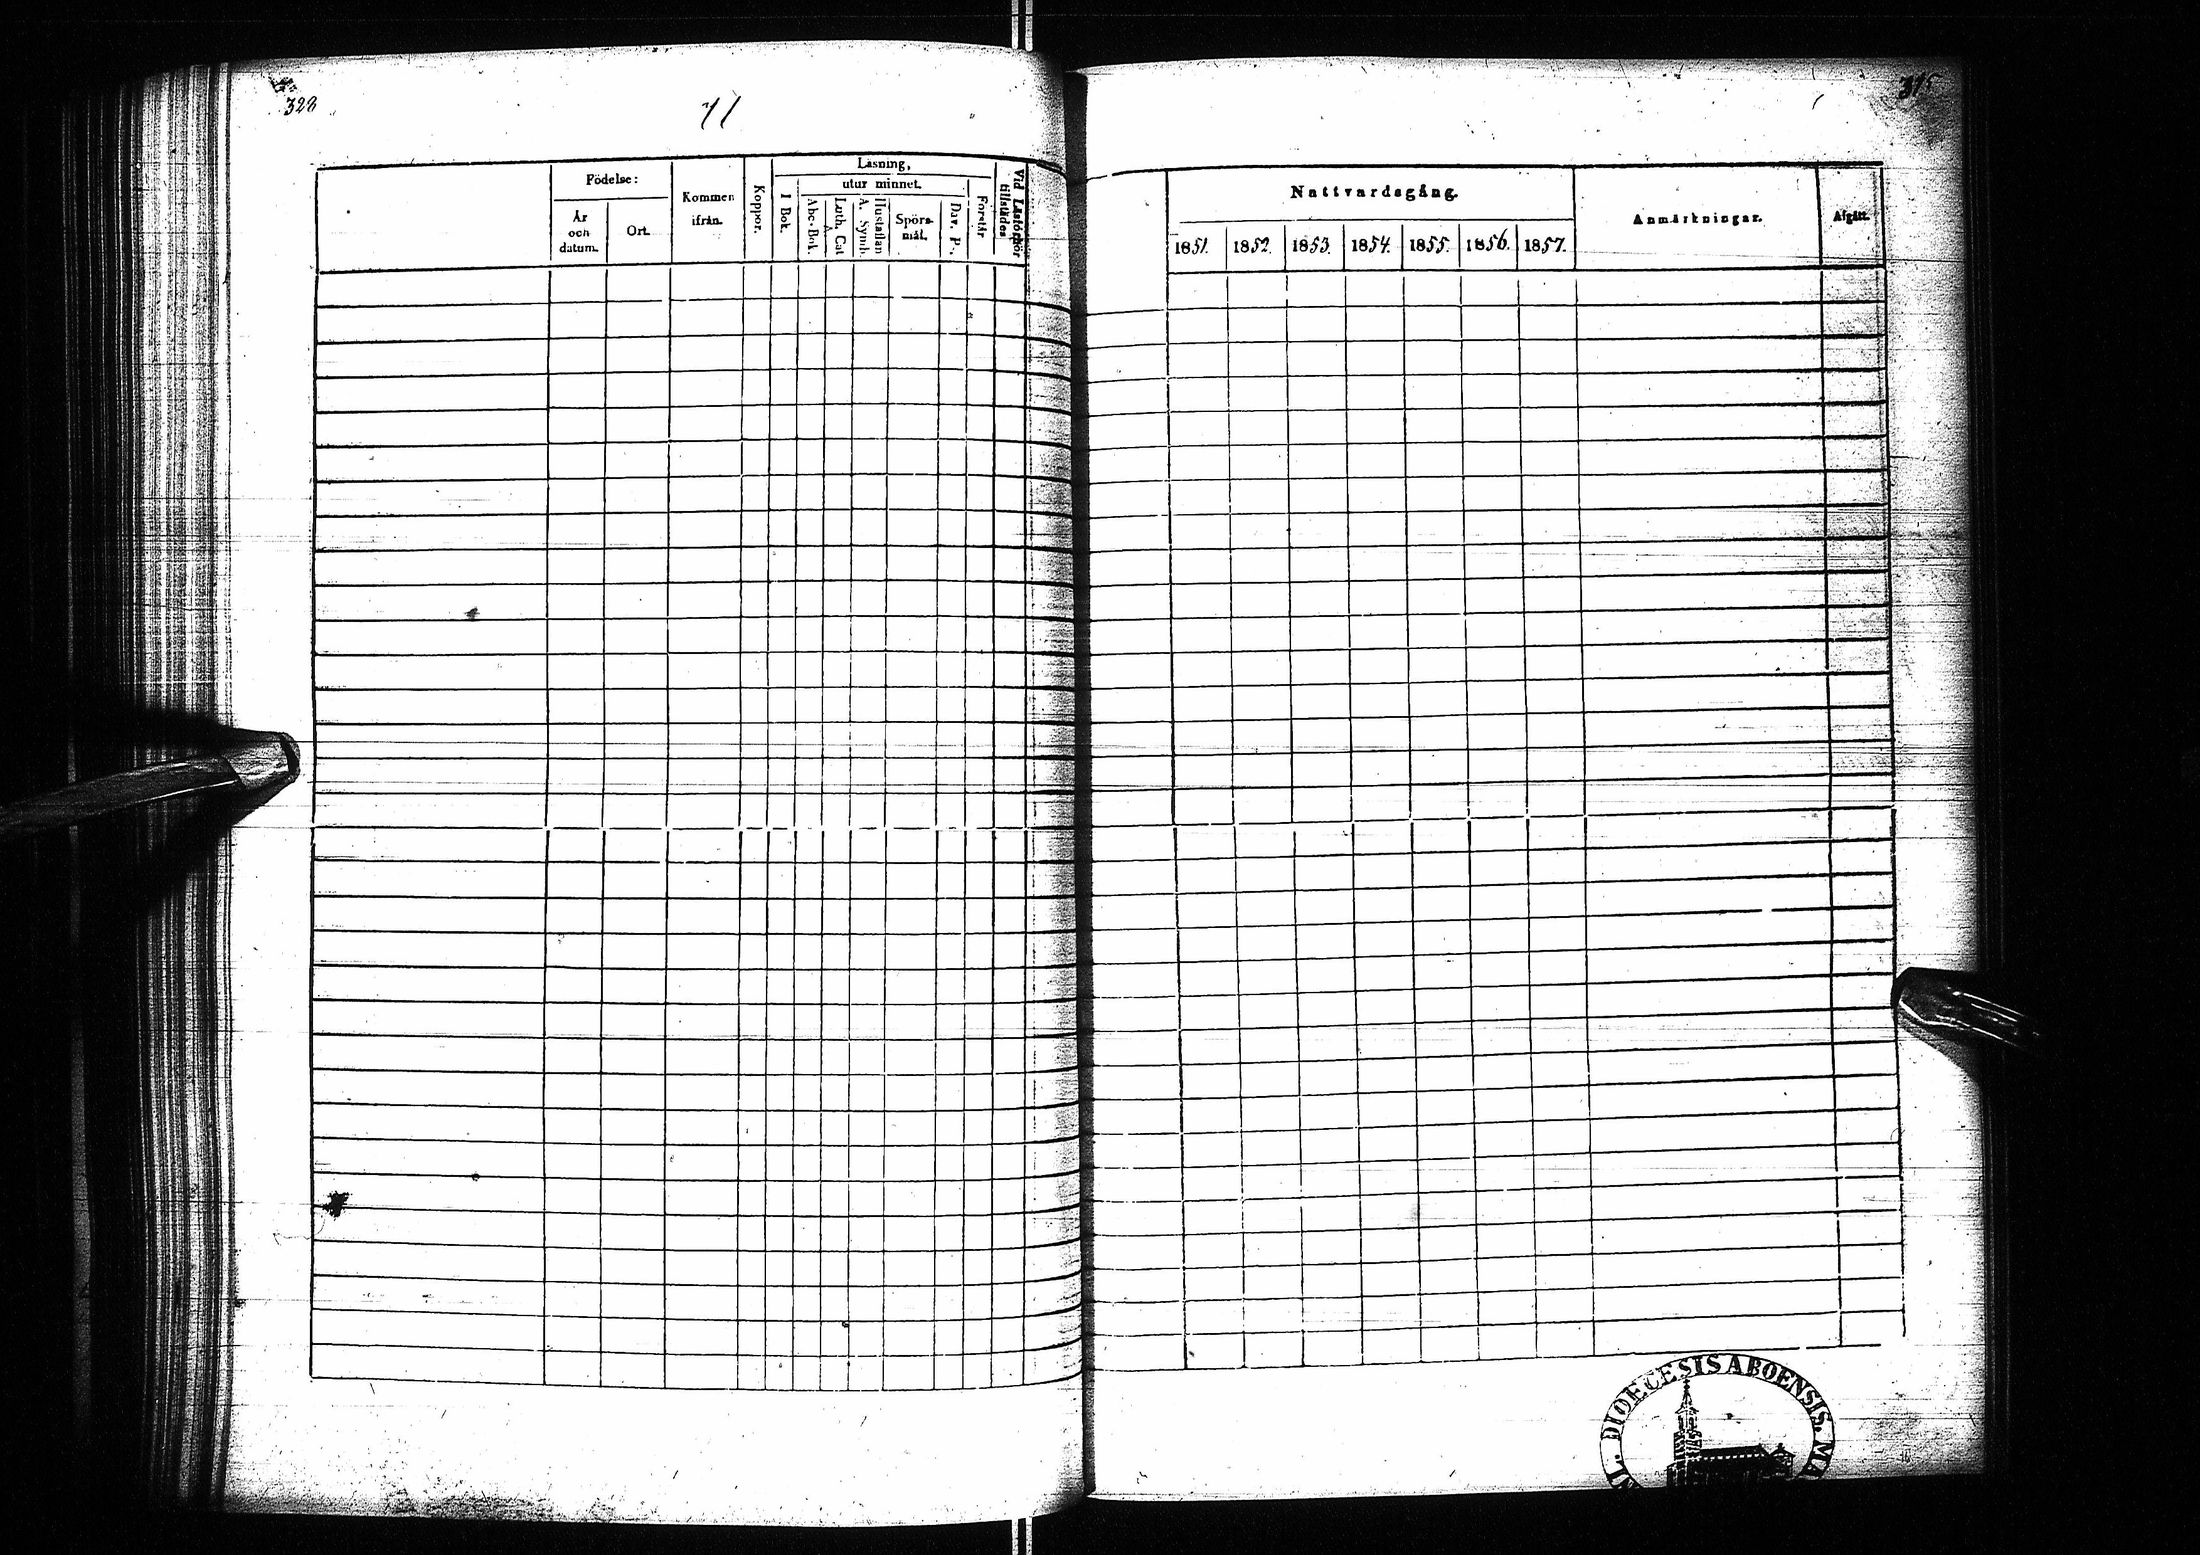 328
71
Läsning,
Födelse:
utur minnet.
Kommen
ifrån.
Koppor.
I Bok.
Abc-Bok.
Luth. Cat
A. Symb.
Hustaflan
Spörs-
mål.
Dav. Ps.
Förstår
Vid Läsförhör
tillstädes
År
och
datum.
Ort.
Nattvardsgång.
Anmärkningar.
Afgått.
1851. 1852. 1853. 1854. 1855. 1856. 1857.
DIOECESIS ABOENSIS. MA